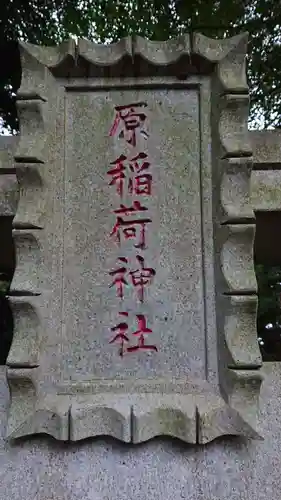 原稲荷神社